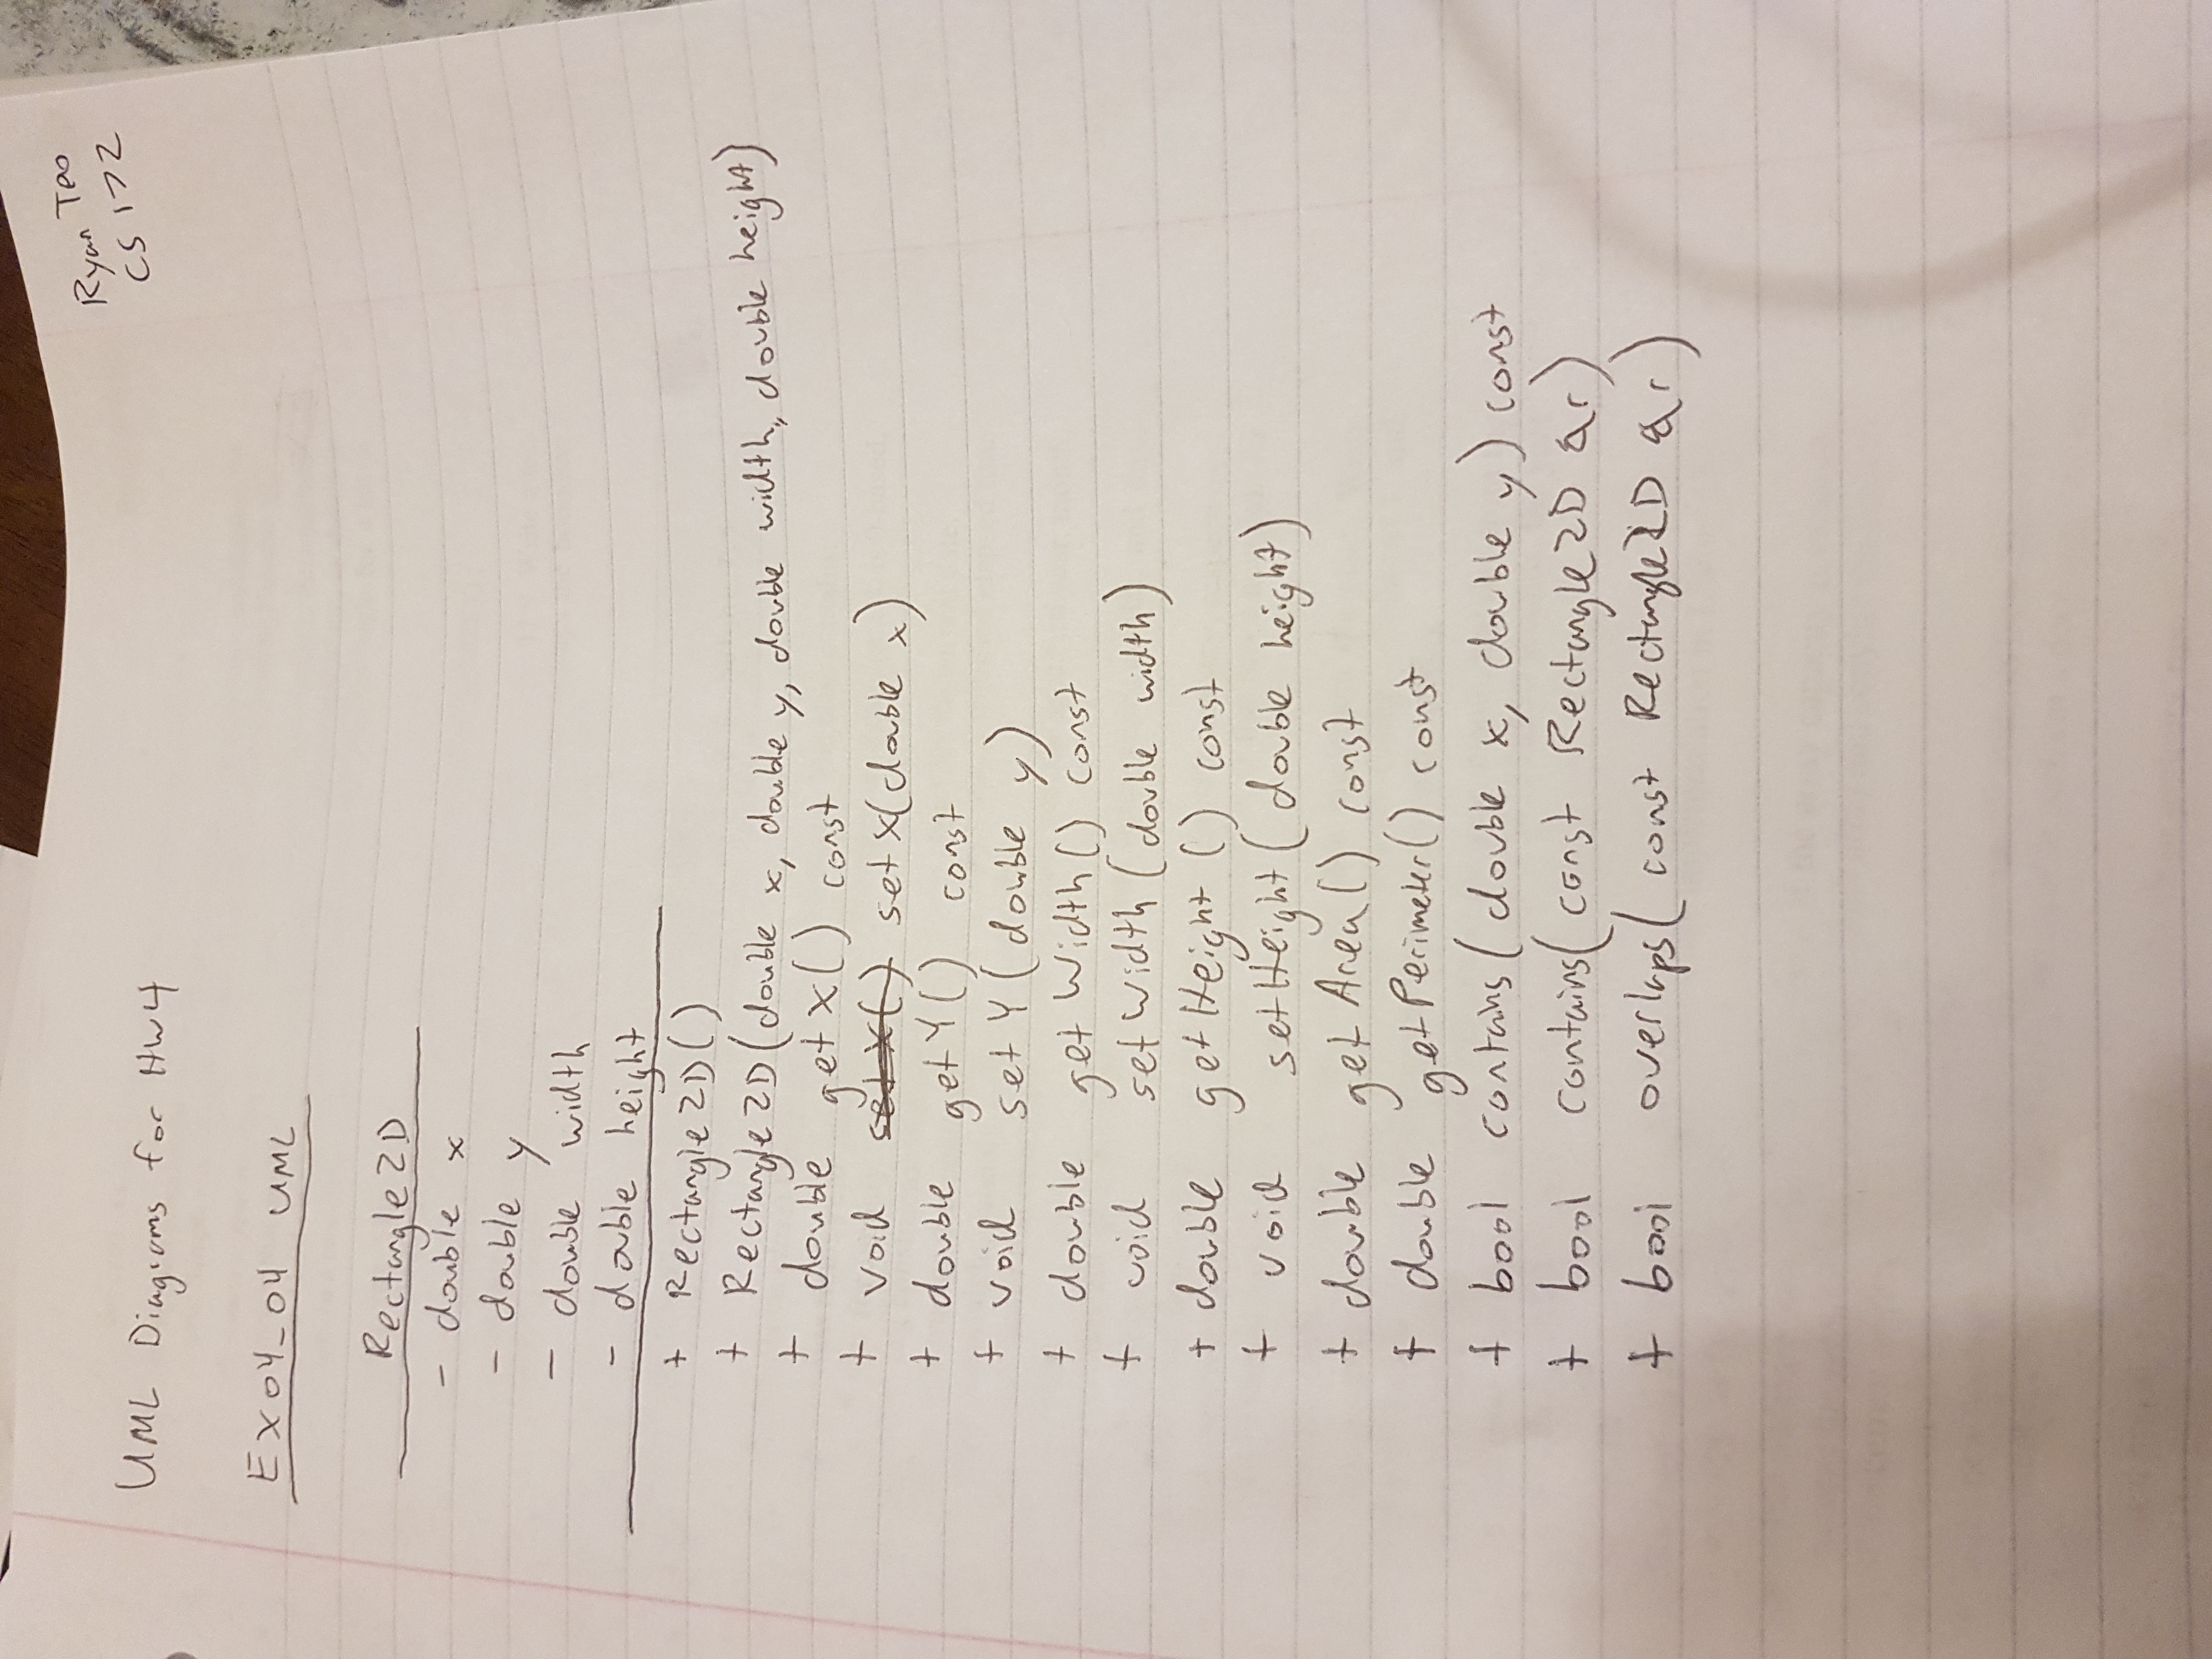 Ryan Teo
CS 172
UML Diagrams for HW4
Ex04_04 UML
Rectangle2D
- double x
- double y
- double width
- double height
+ Rectangle2D()
+ Rectangle2D(double x, double y, double width, double height)
+ double getX() const
+ void setX() setX(double x)
+ double getY() const
+ void setY(double y)
+ double getWidth() const
+ void setWidth(double width)
+ double getHeight() const
+ void setHeight(double height)
+ double getArea() const
+ double getPerimeter() const
+ bool contains(double x, double y) const
+ bool contains(const Rectangle2D &r)
+ bool overlaps(const Rectangle2D &r)